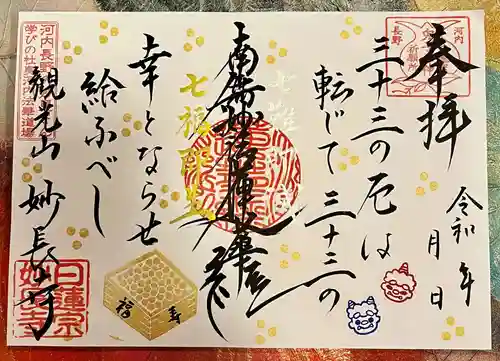 奉拝
令和 年
月 日
三十三の厄は
転じて三十三の
南無妙法蓮華経
七難即滅
七福即生
幸とならせ
給ふべし
観光山 妙長寺
福
寿
河内
長野
祈願所
日蓮宗
妙長寺